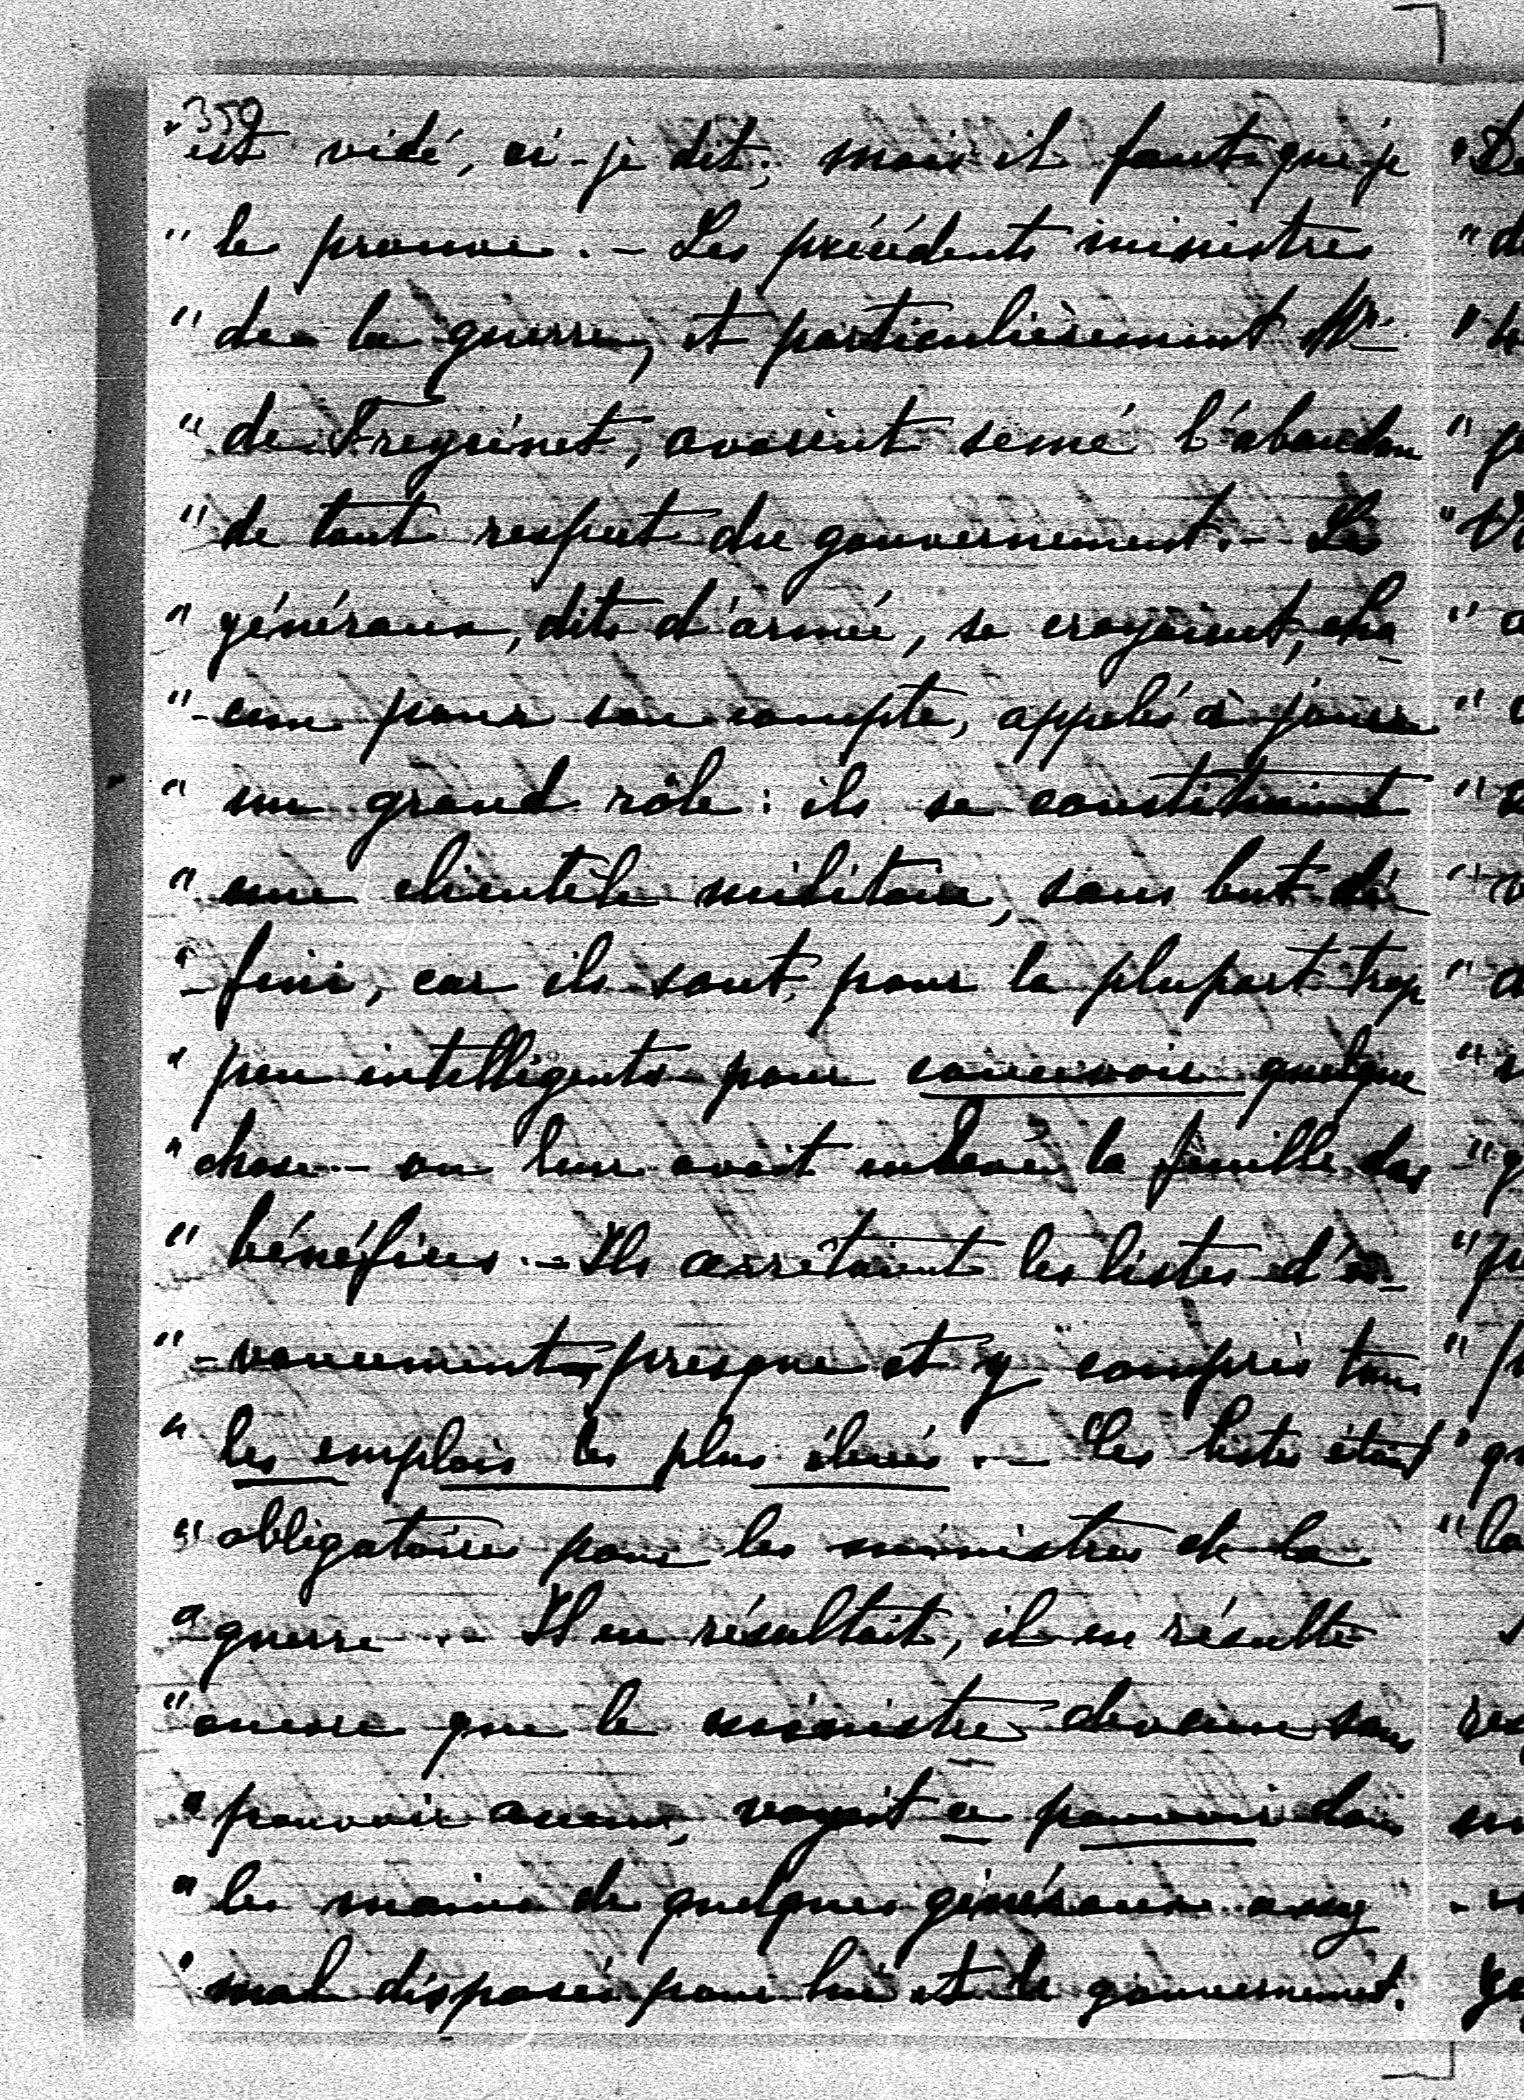 359
" est vidé, ai-je dit; mais il faut que je
" le prouve. - Les précédents ministres
" de la guerre, et particulièrement Mr
" de Freycinet, avaient semé l'abandon
" de tout respect du gouvernement. - Les
" généraux, dits d'armée, se croyaient, cha
" -cun pour son compte, appelés à jouer
" un grand rôle : ils se constituaient
" une clientèle militaire, sans but dé
" -fini, car ils sont, pour la plupart trop
" peu intelligents pour concevoir quelque
" chose - on leur avait enlevé la feuille des
" bénéfices. - Ils arrêtaient les listes d'a-
" -vancements, presque et y compris tous
" les emplois les plus élevés. - Ces listes étaient
" obligatoires pour les ministres de la
" guerre. - Il en résultait, il en résulte
" encore que le ministre devenu sans
" pouvoir aucun, voyait ce pouvoir dans
" les mains de quelques généraux assez
" mal disposés pour lui et le gouvernement.